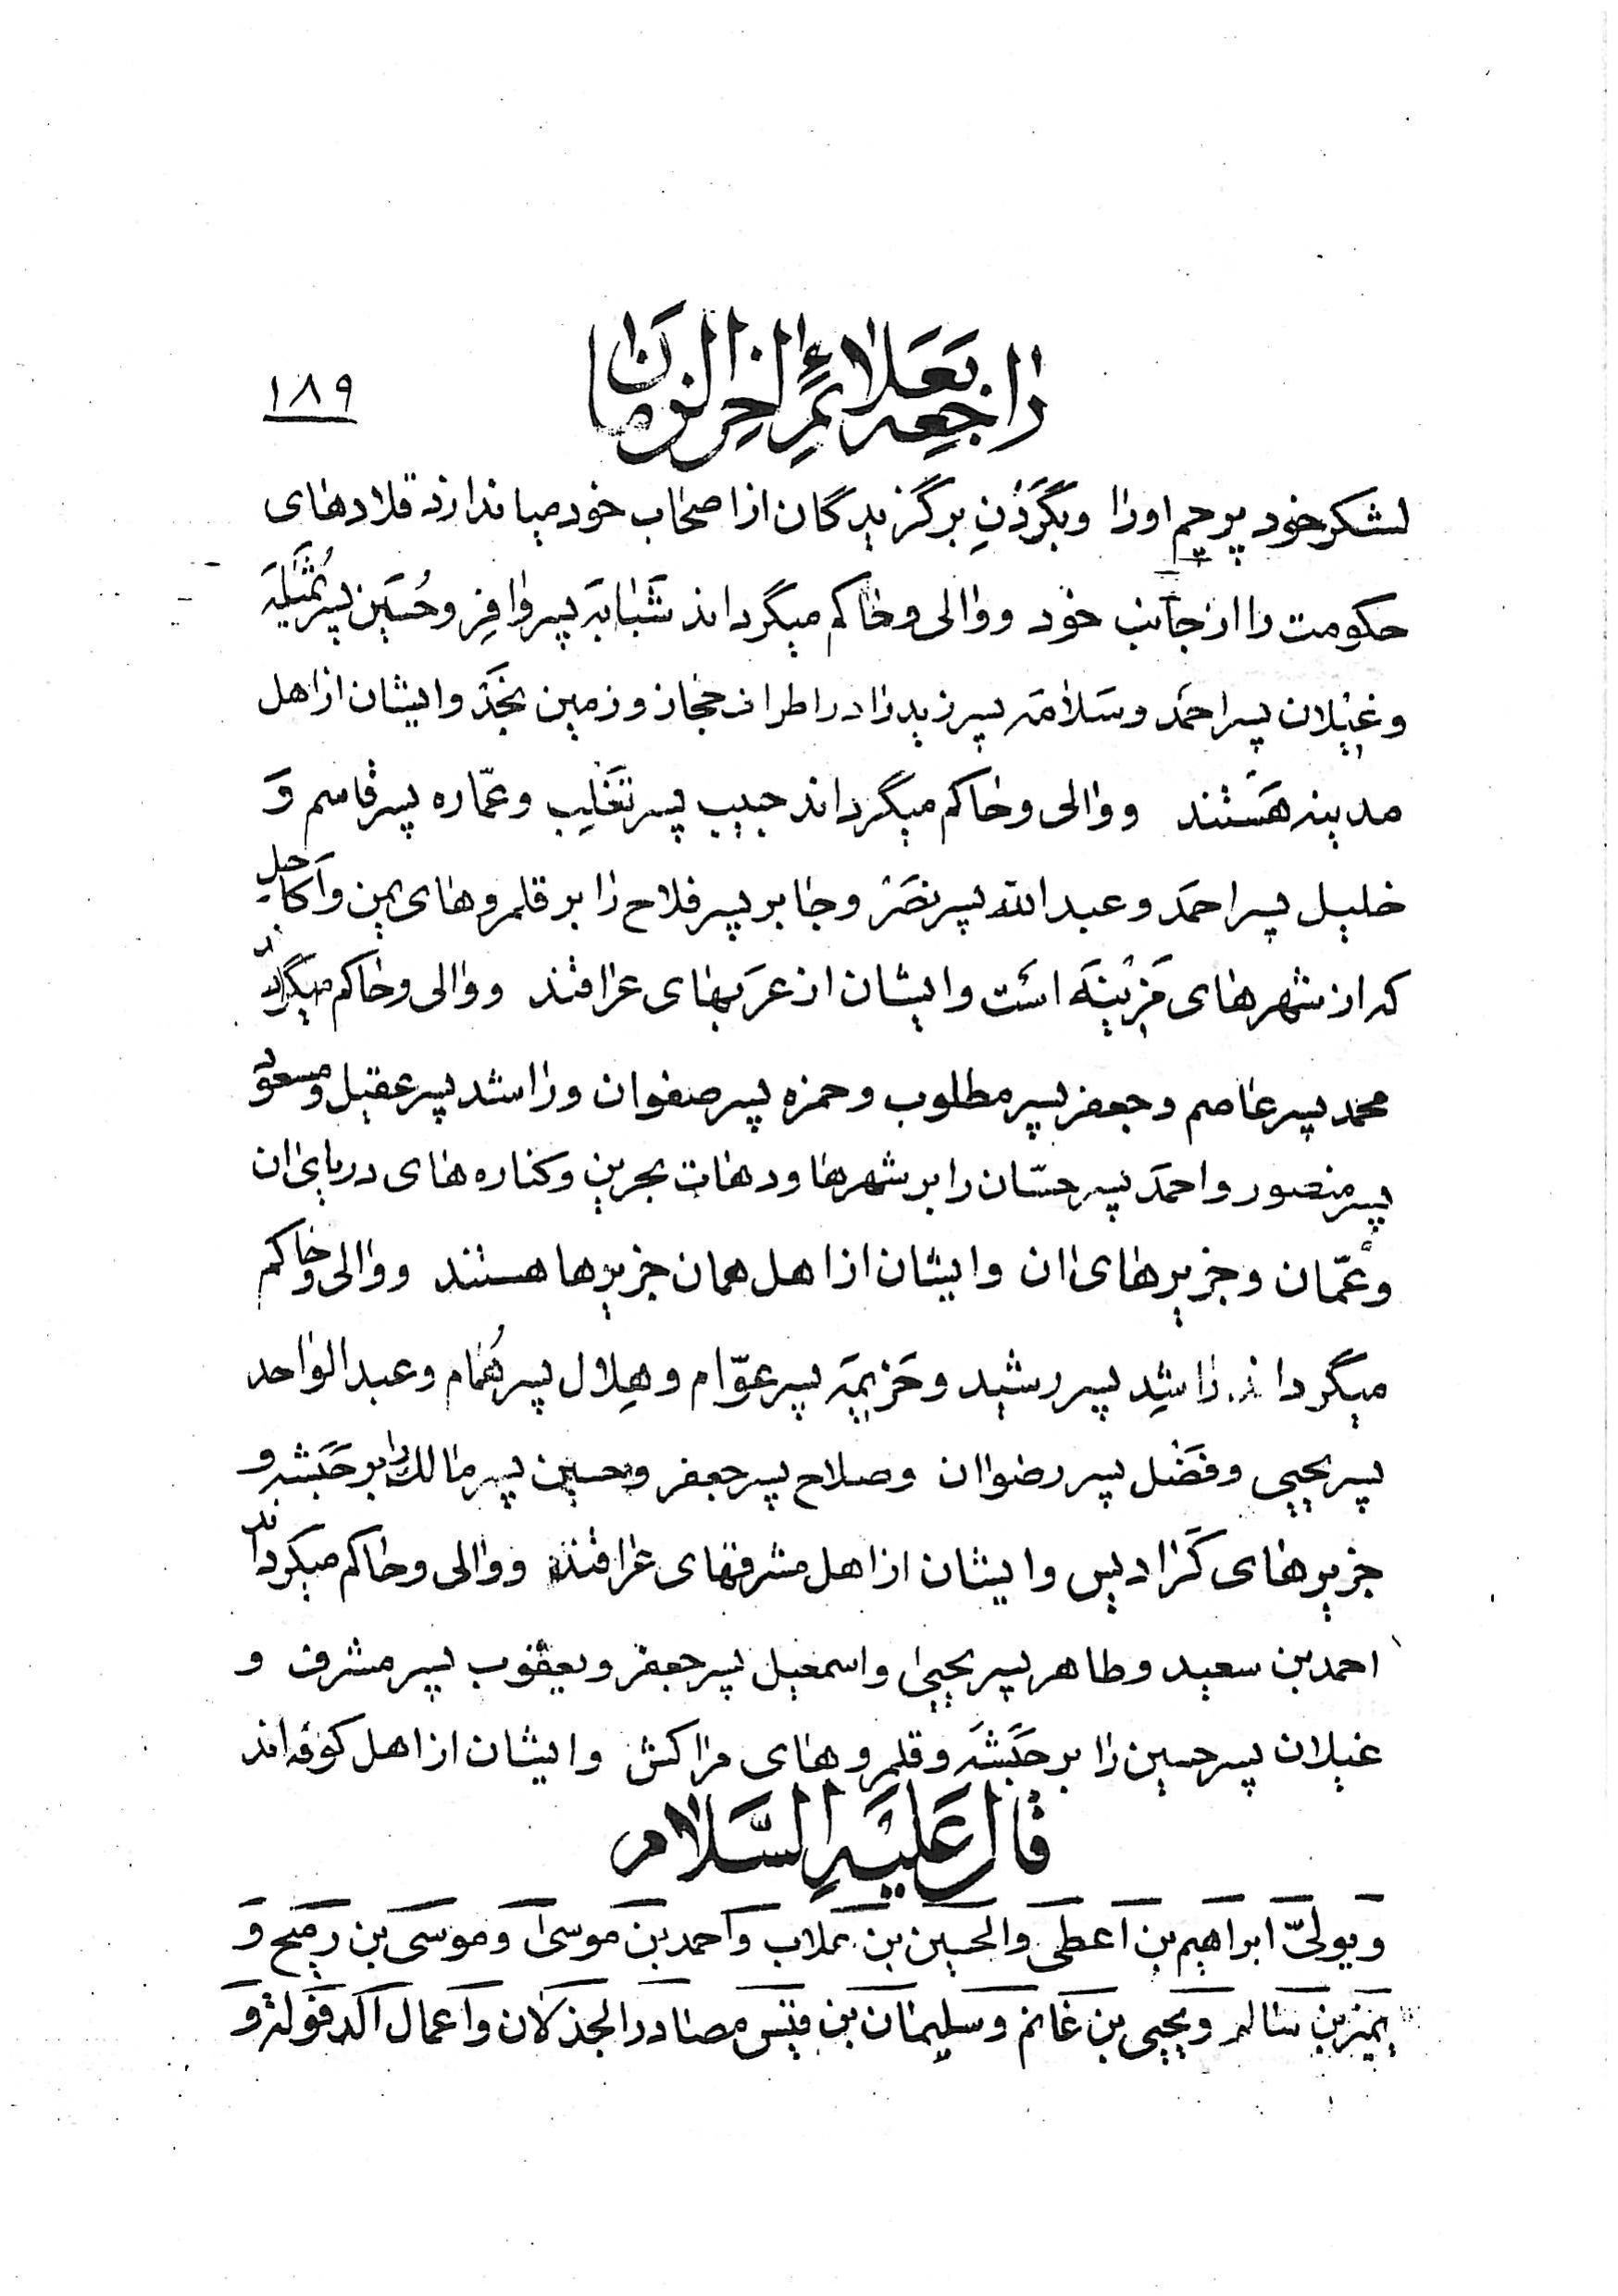 راجعه بعلائم اخر الزمان
۱۸۹
لشکر خود پرچم او را وبگَردَنِ برگزیدگان از اصحاب خود میاندازد قلادهای
حکومت را از جانب خود ووالی وحاکم میگرداند شَبابَة پسر وافِر وحُسَین پسر ثُمَیلَة
وغیلان پسر احمَد وسَلامَة پسر زید را در اطراف حجاز وزمین نَجد وایشان از اهل
مدینه هَستند ووالی وحاکم میگرداند حبیب پسر تَغلِب وعمّاره پسر قاسم وَ
خلیل پسر احمَد وعبدالله پسر نصَر وجابر پسر فلاح را بر قلمروهای یمن واَکاحل
که از شهرهای مَزینَة است وایشان از عربهای عراقند ووالی وحاکم میگرداند
محمد پسر عاصم وجعفر پسر مطلوب وحمزه پسر صفوان وراشد پسر عقیل ومسعود
پسر منصور واحمَد پسر حسّان را بر شهرها ودهات بحرین وکناره های دریای ان
وعُمّان وجزیرهای ان وایشان از اهل همان جزیرها هستند ووالی وحاکم
میگرداند راشِد پسر رشید وخَزیمَة پسر عوّام وهِلال پسر هُمام وعبدالواحد
پسر یحیی وفَضل پسر رضوان وصلاح پسر جعفر وحسین پسر مالک را بر حَبَشه و
جزیرهای کَرادیس وایشان از اهل مشرقهای عراقند ووالی وحاکم میگرداند
احمد بن سعید وطاهر پسر یحیی واسمعیل پسر جعفر ویعقوب پسر مشرف و
غیلان پسر حسین را بر حَبَشَه وقلمروهای مراکش وایشان از اهل کوفه اند
قالَ عَلَیهِ السَّلام
ویولیّ ابراهیم بن اعطی والحسین بن علاب واحمد بن موسی وموسی بن رمیح وَ
یمیز بن سالم ویحیی بن غانم وسلیمان بن قیس مصادر الجذلان واعمال الدقوله و